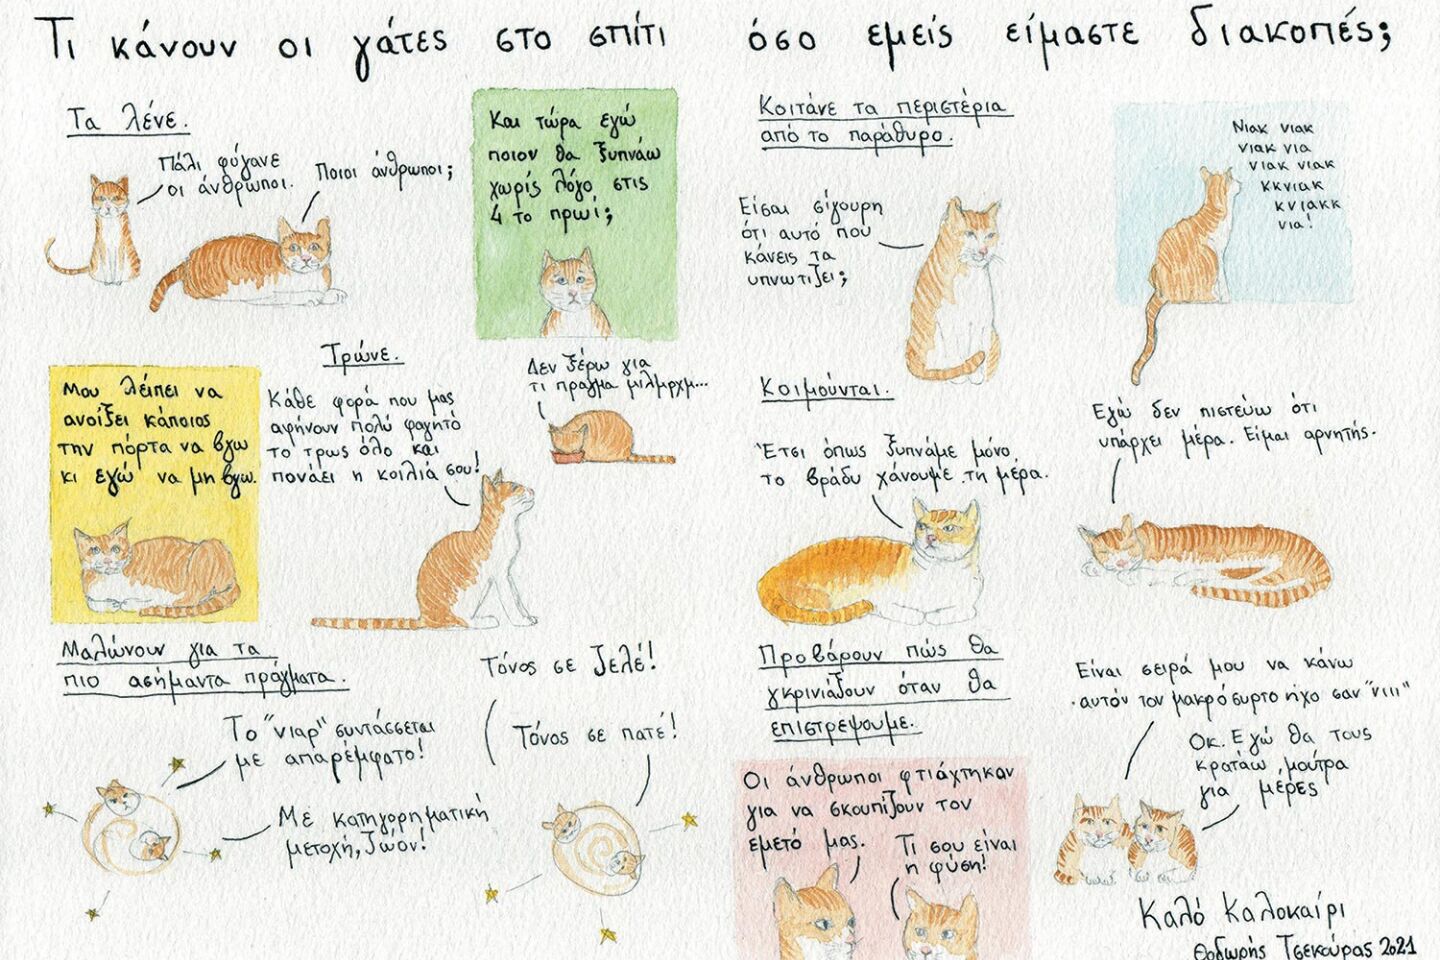 Τι κάνουν οι γάτες στο σπίτι όσο εμείς είμαστε διακοπές;
Τα λένε.
Πάλι φύγανε
οι άνθρωποι.
Ποιοι άνθρωποι;
Και τώρα εγώ
ποιον θα ξυπνάω
χωρίς λόγο στις
4 το πρωί;
Μου λείπει να
ανοίξει κάποιος
την πόρτα να βγω
κι εγώ να μη βγω.
Τρώνε.
Κάθε φορά που μας
αφήνουν πολύ φαγητό
το τρως όλο και
πονάει η κοιλιά σου!
Δεν ξέρω για
τι πράγμα μιλμρχμ...
Μαλώνουν για τα
πιο ασήμαντα πράγματα.
Το "νιαρ" συντάσσεται
με απαρέμφατο!
Με κατηγορηματική
μετοχή, ζωον!
Τόνος σε ζελέ!
Τόνος σε πατέ!
Κοιτάνε τα περιστέρια
από το παράθυρο.
Είσαι σίγουρη
ότι αυτό που
κάνεις τα
υπνωτίζει;
Νιακ νιακ
νιακ νια
νιακ νιακ
κκνιακ
κνιακκ
νια!
Κοιμούνται.
Έτσι όπως ξυπνάμε μόνο
το βράδυ χάνουμε τη μέρα.
Εγώ δεν πιστεύω ότι
υπάρχει μέρα. Είμαι αρνητής.
Προβάρουν πώς θα
γκρινιάζουν όταν θα
επιστρέψουμε.
Οι άνθρωποι φτιάχτηκαν
για να σκουπίζουν τον
εμετό μας.
Τι σου είναι
η φύση!
Είναι σειρά μου να κάνω
αυτόν τον μακρόσυρτο ήχο σαν "νιιι"
Οκ. Εγώ θα τους
κρατάω μούτρα
για μέρες
Καλό Καλοκαίρι
Θοδωρής Τσεκούρας 2021